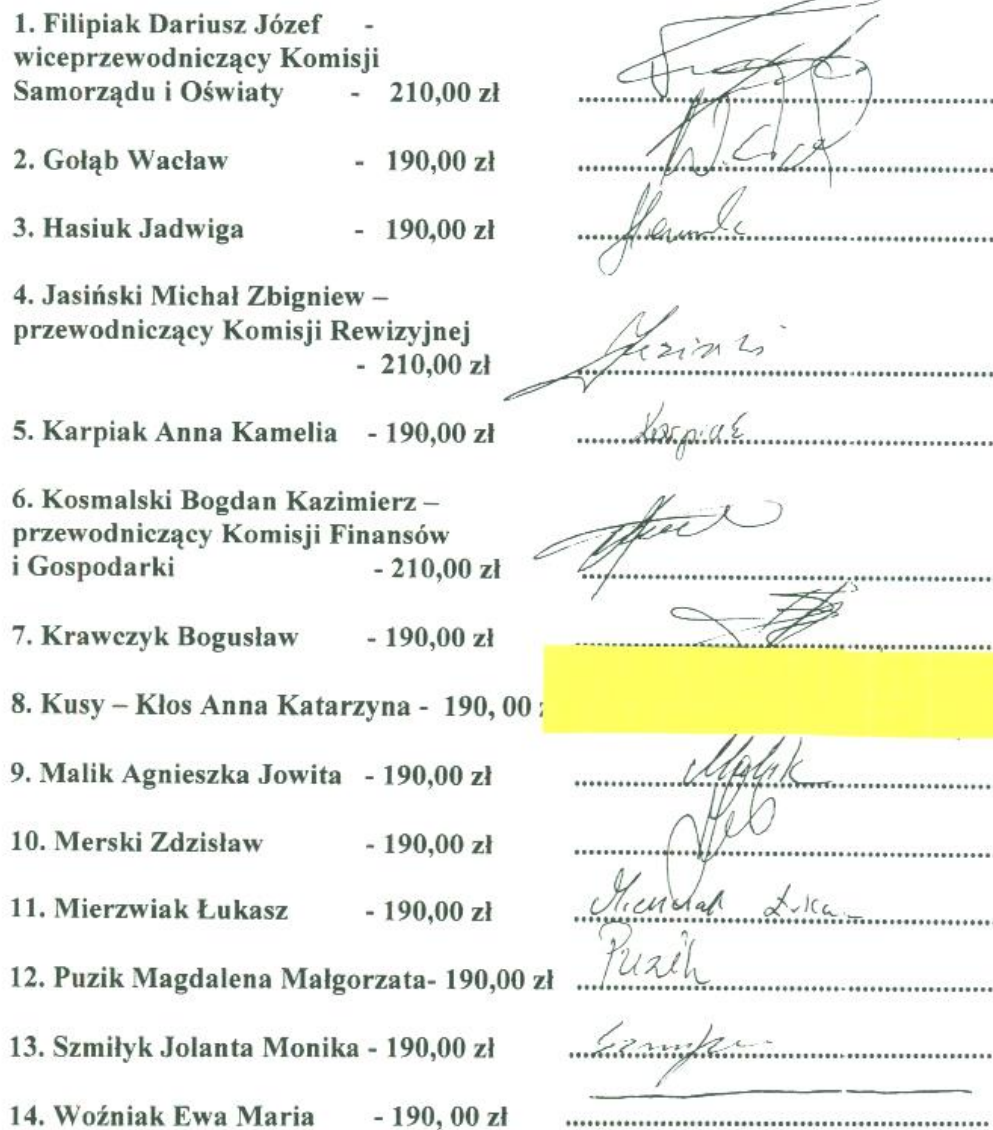 1. Filipiak Dariusz Józef -
wiceprzewodniczący Komisji
Samorządu i Oświaty - 210,00 zł
2. Gołąb Wacław - 190,00 zł
3. Hasiuk Jadwiga - 190,00 zł
4. Jasiński Michał Zbigniew –
przewodniczący Komisji Rewizyjnej
- 210,00 zł
5. Karpiak Anna Kamelia - 190,00 zł Karpiak
6. Kosmalski Bogdan Kazimierz –
przewodniczący Komisji Finansów
i Gospodarki - 210,00 zł
7. Krawczyk Bogusław - 190,00 zł
8. Kusy – Kłos Anna Katarzyna - 190, 00
9. Malik Agnieszka Jowita - 190,00 zł Malik
10. Merski Zdzisław - 190,00 zł
11. Mierzwiak Łukasz - 190,00 zł
12. Puzik Magdalena Małgorzata- 190,00 zł Puzik
13. Szmiłyk Jolanta Monika - 190,00 zł
14. Woźniak Ewa Maria - 190, 00 zł